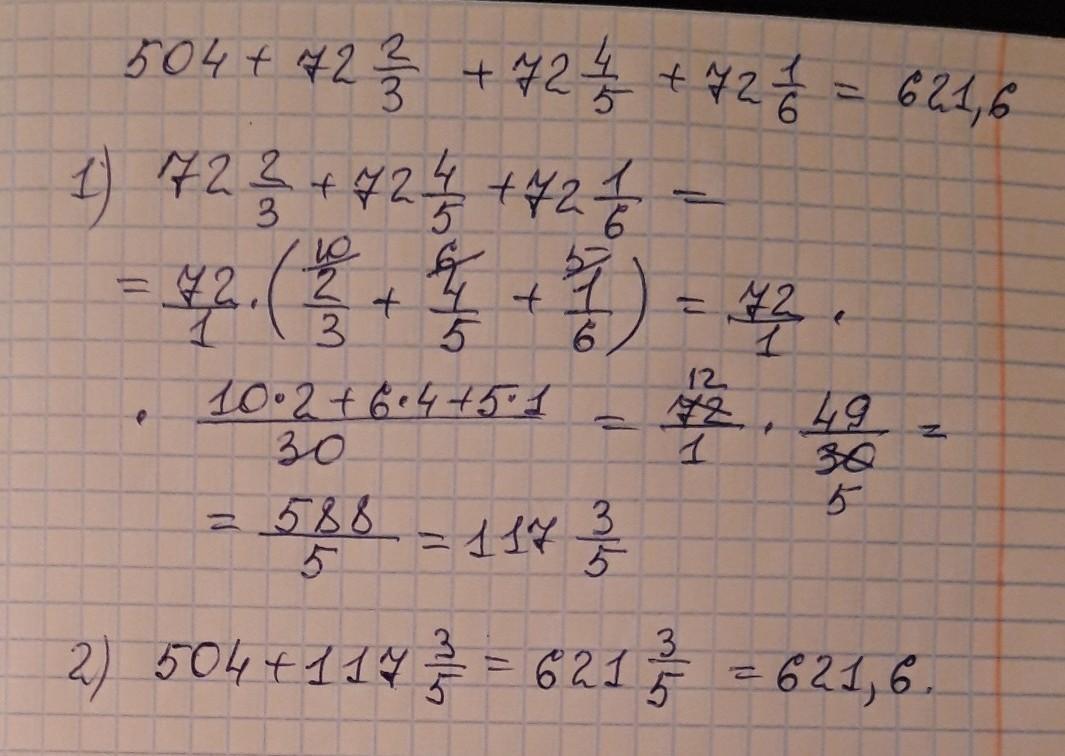 504 + 72 2/3 + 72 4/5 + 72 1/6 = 621,6
1) 72 2/3 + 72 4/5 + 72 1/6 =
= 72/1 · (10 2/3 + 6 4/5 + 5 1/6) = 72/1 ·
· (10·2+6·4+5·1)/30 = 12 72/1 · 49/30 5 =
= 588/5 = 117 3/5
2) 504 + 117 3/5 = 621 3/5 = 621,6.